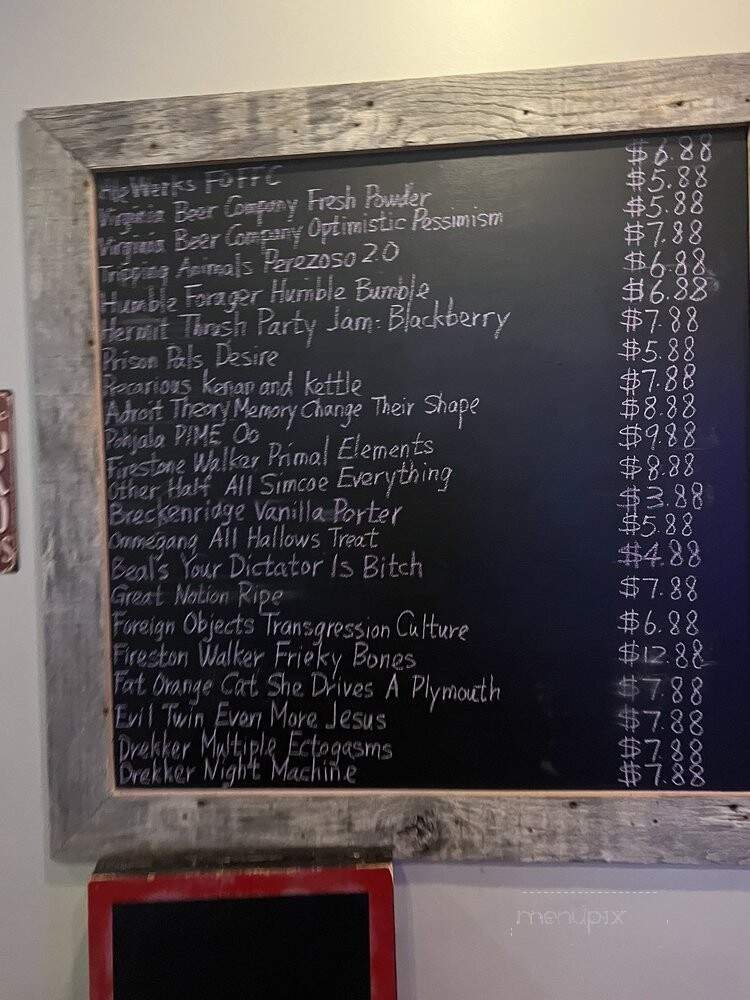 AleWerks FOFFC $6.88
Virginia Beer Company Fresh Powder $5.88
Virginia Beer Company Optimistic Pessimism $5.88
Tripping Animals Perezoso 2.0 $7.88
Humble Forager Humble Bumble $6.88
Hermit Thrush Party Jam: Blackberry $6.88
Prison Pals Desire $7.88
Precarious Kenan and Kettle $5.88
Adroit Theory Memory Change Their Shape $7.88
Pohjala PIME Oo $8.88
Firestone Walker Primal Elements $9.88
Other Half All Simcoe Everything $8.88
Breckenridge Vanilla Porter $3.88
Ommegang All Hallows Treat $5.88
Beal's Your Dictator Is Bitch $4.88
Great Notion Ripe $7.88
Foreign Objects Transgression Culture $6.88
Fireston Walker Frieky Bones $12.88
Fat Orange Cat She Drives A Plymouth $7.88
Evil Twin Even More Jesus $7.88
Drekker Multiple Ectogasms $7.88
Drekker Night Machine $7.88
menupix